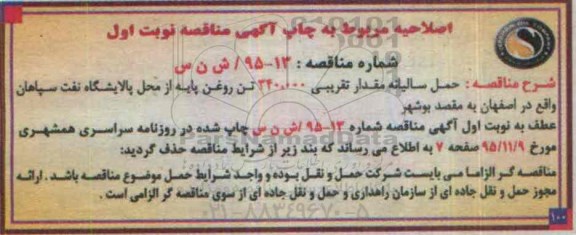 اصلاحیه مربوط به چاپ آگهی مناقصه نوبت اول
شماره مناقصه : ۱۳-۹۵ / ش ن س
شرح مناقصه : حمل سالیانه مقدار تقریبی ۳۴۰،۰۰۰ تن روغن پایه از محل پالایشگاه نفت سپاهان
واقع در اصفهان به مقصد بوشهر
عطف به نوبت اول آگهی مناقصه شماره ۱۳-۹۵ /ش ن س چاپ شده در روزنامه سراسری همشهری
مورخ ۹۵/۱۱/۹ صفحه ۷ به اطلاع می رساند که بند زیر از شرایط مناقصه حذف گردید:
مناقصه گر الزاما می بایست شرکت حمل و نقل بوده و واجد شرایط حمل موضوع مناقصه باشد . ارائه
مجوز حمل و نقل جاده ای از سازمان راهداری و حمل و نقل جاده ای از سوی مناقصه گر الزامی است .
۰۲۱-۸۸۳۴۹۶۷۰-۵
۱۰۰